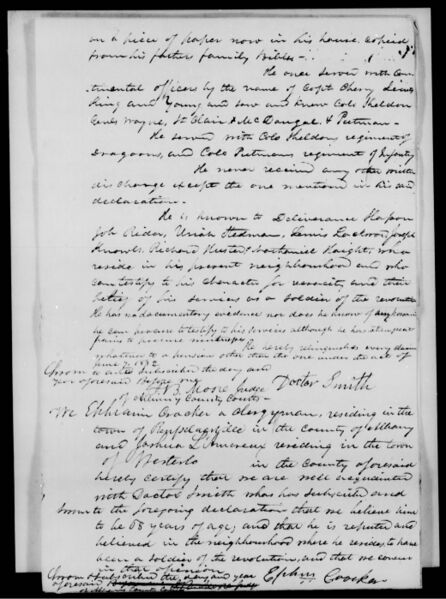 on a piece of paper now in his house copied
from his father family Bible -
He once served with Con-
tinental officers by the name of Capt Cherry Lieu
King and Young and saw and knew Cols Sheldon
Genls Wayne, St Clair & McDougal & Putman -
He served with Cols Sheldon, regiment of
Dragoons, and Cols Putmans regiment of Infantry
He never received any other written
discharge except the one mentioned in his said
declaration.
He is known to Deliverance
Job Rider, Uriah Stedman, Lewis Joseph
Knowls, Richard Nathaniel Haight, who
reside in his present neighbourhood and who
can testify to his character for veracity and their
belief of his services as a soldier of the revolution
He has no documentary evidence nor does he know of any person
he can procure to testify to his services although he has
pains to procure
He hereby relinquishes every claim
whatever to a pension other than the one under the act of
June 7. 1832
Sworn to and subscribed the day and
year aforesaid Before me Doctor Smith
Moore Judge
of Albany County Courts -
We Ephraim Crocker a clergyman, residing in the
town of Rensselaerville in the county of Albany
and Joshua L'Amoreux residing in the town
of Westerlo in the County aforesaid
hereby certify that we are well acquainted
with Doctor Smith who has subscribed and
sworn to the foregoing declaration that we believe him
to be 68 years of age; and that he is reputed and
believed in the neighbourhood where he resides, to have
been a soldier of the revolution, and that we concur
in that opinion
Sworn & subscribed the day and year
aforesaid Ephm Crocker